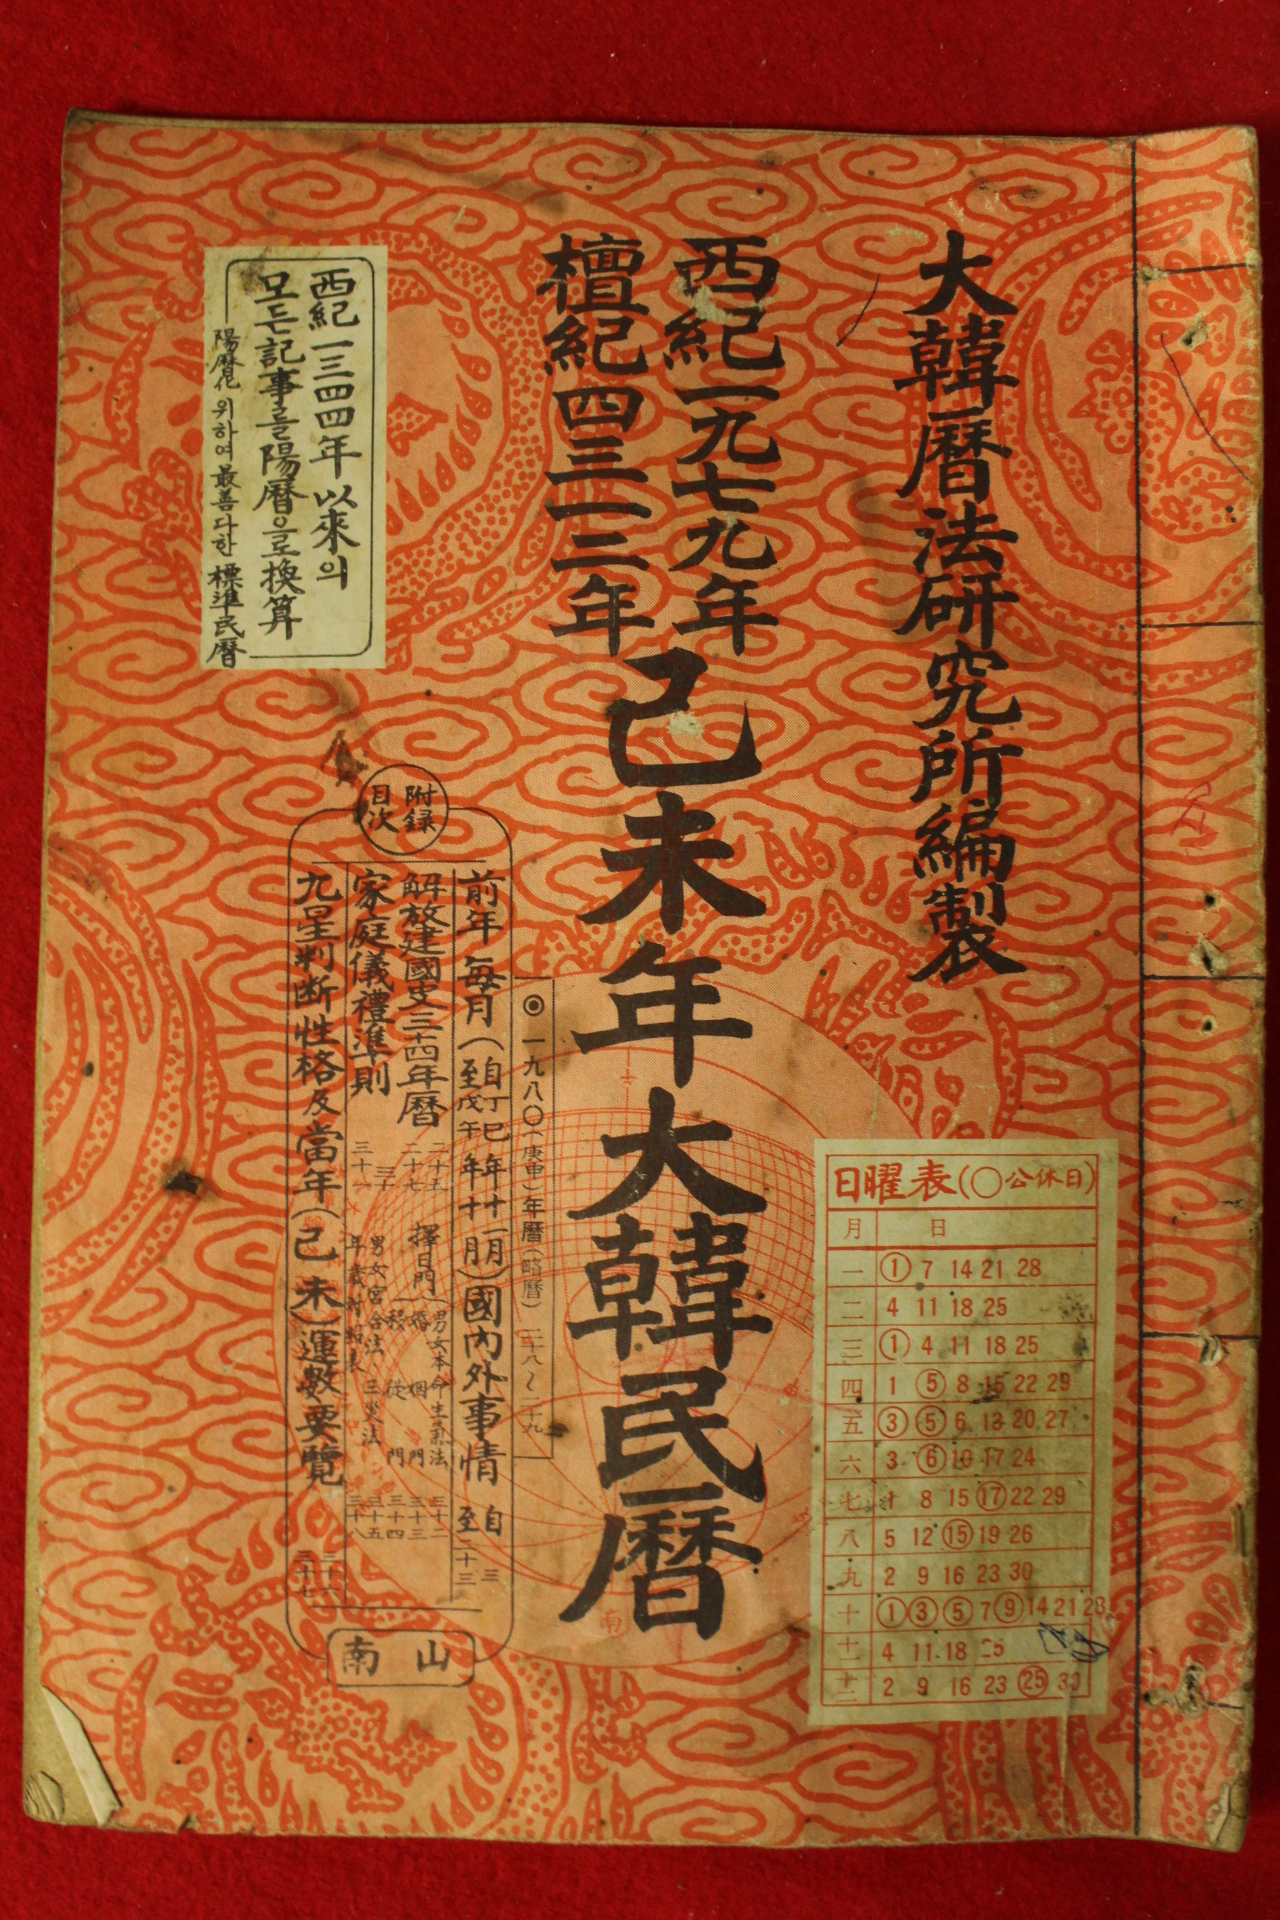 大韓曆法硏究所編製
西紀一九七九年
檀紀四三一二年
己未年大韓民曆
西紀一三四四年以來의
모든記事를陽曆으로換算
陽曆化 위하여 最善다한 標準民曆
附錄
目次
◉一九八〇(庚申)年曆(略曆) 二十八~二十九
前年 每月(自丁巳年十一月 至戊午年十月)國內外事情 自三 至二十三
解放建國史三十四年曆
二十五
二十七
擇日門
男女本命生氣法 三十二
婚姻門 三十三
移徙門 三十四
家庭儀禮準則
三十
三十一
男女宮合法 三災法 三十五
年歲對照表 三十八
九星判断性格及當年(己未)運數要覽
三十六
三十七
南山
南
日曜表(○公休日)
月 日
一 ① 7 14 21 28
二 4 11 18 25
三 ① 4 11 18 25
四 1 ⑤ 8 15 22 29
五 ③ ⑤ 6 13 20 27
六 3 ⑥ 10 17 24
七 8 15 ⑰ 22 29
八 5 12 ⑮ 19 26
九 2 9 16 23 30
十 ① ③ ⑤ 7 ⑨ 14 21 28
十一 4 11 18 25
十二 2 9 16 23 ㉕ 30